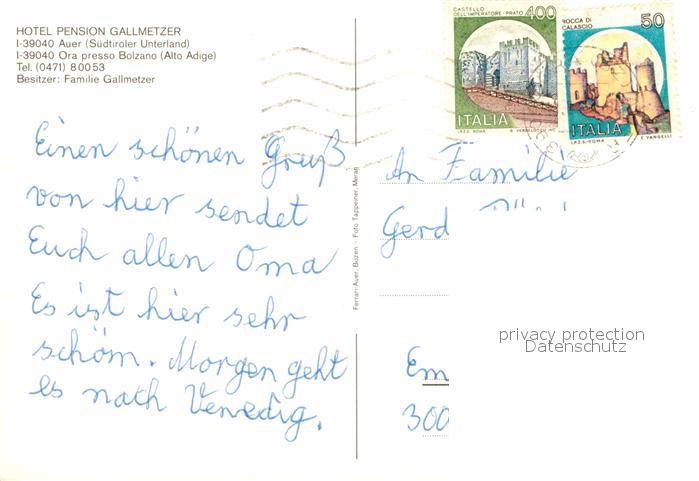 HOTEL PENSION GALLMETZER
I-39040 Auer (Südtiroler Unterland)
I-39040 Ora presso Bolzano (Alto Adige)
Tel. (0471) 80053
Besitzer: Familie Gallmetzer
CASTELLO DELL'IMPERATORE · PRATO 400
ITALIA
I.P.Z.S. ROMA
ROCCA DI CALASCIO 50
ITALIA
I.P.Z.S. ROMA E. VANGELLI
Einen schönen Gruß
von hier sendet
Euch allen Oma
Es ist hier sehr
schöm. Morgen geht
es nach Venedig.
Ferrari-Auer, Bozen - Foto Tappeiner, Meran
An Familie
Gerd
Em
300
privacy protection
Datenschutz